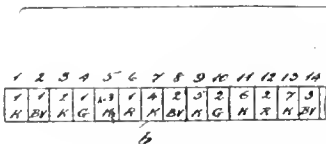 1 2 3 4 5 6 7 8 9 10 11 12 13 14
1 1 2 1 3 1 4 2 5 2 6 2 7 3
K BV K G K R K BV K G K R K BV
b